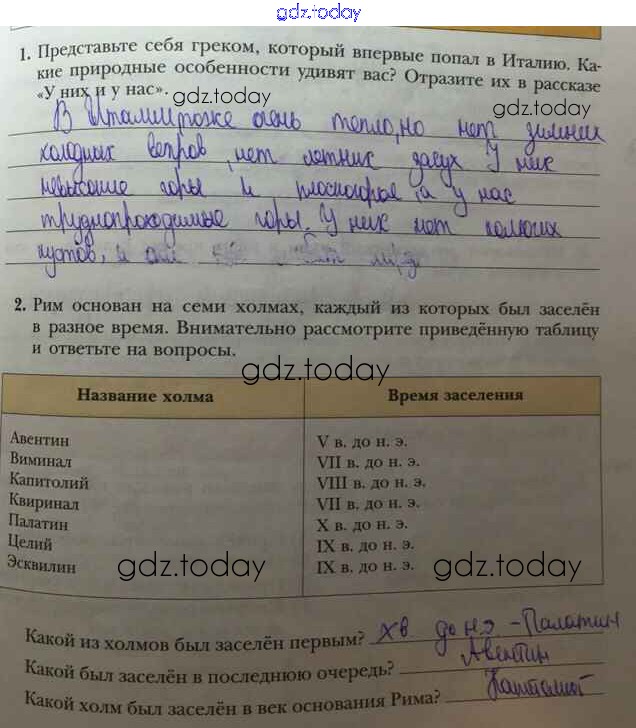 gdz.today
1. Представьте себя греком, который впервые попал в Италию. Ка-
кие природные особенности удивят вас? Отразите их в рассказе
«У них и у нас».
gdz.today
gdz.today
В Италии тоже очень тепло, но нет зимних
холодных ветров, нет летних засух У них
невысокие горы и плоскогорье, а у нас
труднопроходимые горы. У них нет колючих
кустов, и они
2. Рим основан на семи холмах, каждый из которых был заселён
в разное время. Внимательно рассмотрите приведённую таблицу
и ответьте на вопросы.
gdz.today
Название холма Время заселения
Авентин V в. до н. э.
Виминал VII в. до н. э.
Капитолий VIII в. до н. э.
Квиринал VII в. до н. э.
Палатин X в. до н. э.
Целий IX в. до н. э.
Эсквилин IX в. до н. э.
gdz.today
gdz.today
Какой из холмов был заселён первым? X в до н э - Палатин
Какой был заселён в последнюю очередь? Авентин
Какой холм был заселён в век основания Рима? Капитолий